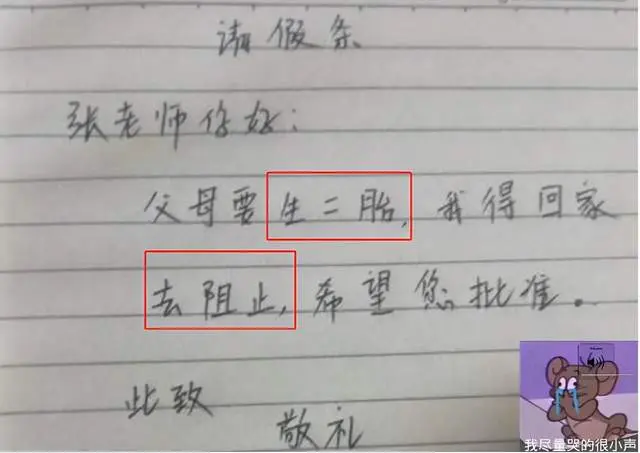 请假条
张老师你好：
父母要生二胎，我得回家
去阻止，希望您批准。
此致
敬礼
我尽量哭的很小声